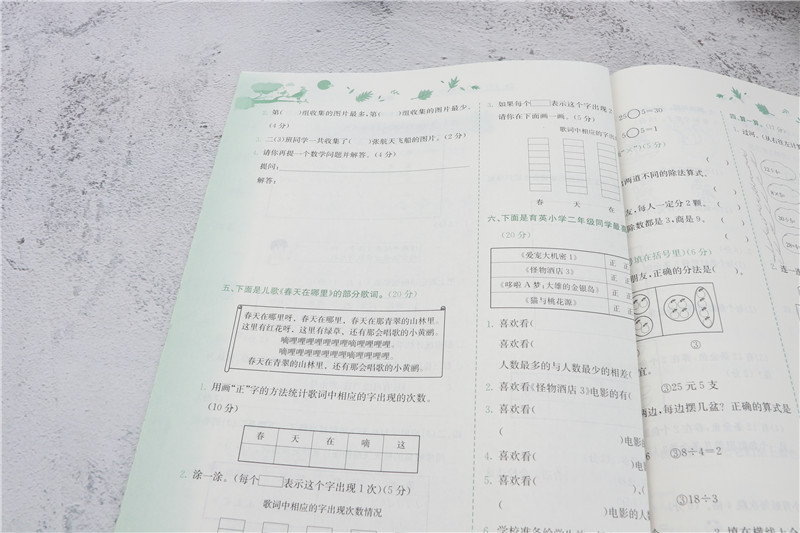 第(　　)组收集的图片最多,第(　　)组收集的图片最少。
(4分)
二(3)班同学一共收集了(　　)张航天飞船的图片。(2分)
请你再提一个数学问题并解答。(4分)
提问:
解答:
五、下面是儿歌《春天在哪里》的部分歌词。(20分)
春天在哪里呀,春天在哪里,春天在那青翠的山林里。
这里有红花呀,这里有绿草,还有那会唱歌的小黄鹂。
嘀哩哩哩哩哩哩嘀哩哩哩哩。
嘀哩哩哩哩哩哩嘀哩哩哩哩。
春天在青翠的山林里,还有那会唱歌的小黄鹂。
1. 用画“正”字的方法统计歌词中相应的字出现的次数。
(10分)
春 天 在 嘀 这
2. 涂一涂。(每个 表示这个字出现1次)(5分)
歌词中相应的字出现次数情况
3. 如果每个 表示这个字出现
请你在下面画一画。(5分)
歌词中相应的字出
春 天 在
六、下面是育英小学二年级同学最喜
(20分)
《爱宠大机密1》 正 正
《怪物酒店3》 正
《哆啦A梦:大雄的金银岛》 正
《猫与桃花源》 正 正
1. 喜欢看(
喜欢看(
人数最多的与人数最少的相差(
2. 喜欢看《怪物酒店3》电影的有(
3. 喜欢看(
( )电影
4. 喜欢看( )电
5. 喜欢看( ),(
( )电影的人
6. 学校准备给学生
25○5=30
○5=1
(5分)
两道不同的除法算式。
友,每人一定分2颗。( )
除数都是3,商是9。( )
填在括号里)(6分)
朋友,正确的分法是( )。
③
宜。
③25元5支
两边,每边摆几盆?正确的算式是
③8÷4=2
③18÷3
2. 填在横线上
四、算一算。
1. 过河。(从右往左计
2. 连一连